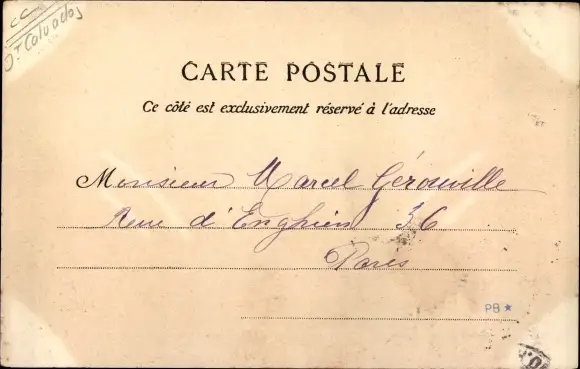 Dt Calvados
CARTE POSTALE
Ce côté est exclusivement réservé à l'adresse
Monsieur Marcel Gérouville
Rue d'Enghien 36
Paris
PB ★